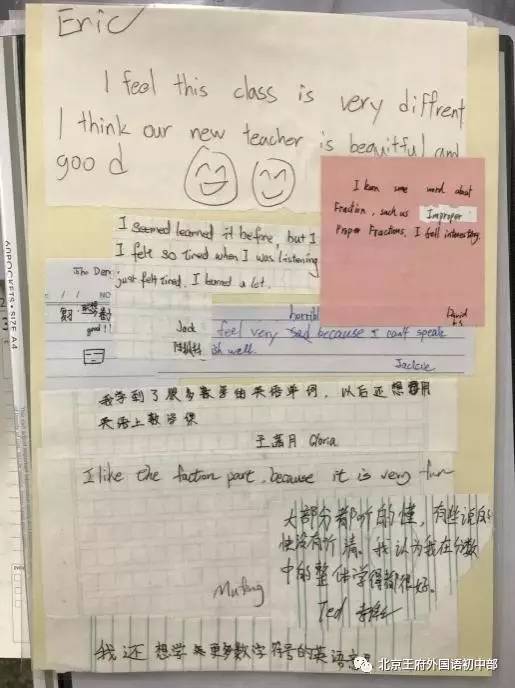 Eric
I feel this class is very diffrent
I think our new teacher is bequitful and
good
I learn some word about
Fraction, such as Improper
Proper Fractions. I fell interesting.
David
I seemed learned it before, but I
I felt so tired when I was listening
just felt tired. I learned a lot.
John
good!!
horrible
Jack feel very sad because I can't speak
ish well.
Jackie
我学到了很多数学由英语单词，以后还想用
英语上数学课
Gloria
I like the faction part, because it is very fun
Mufang
大部分都听的懂，有些说
快没有听清。我认为我在分数
中的整体学得都很好。
Ted
我还想学更多数学符号的英语
AOROCKETS·SIZE A4
北京王府外国语初中部